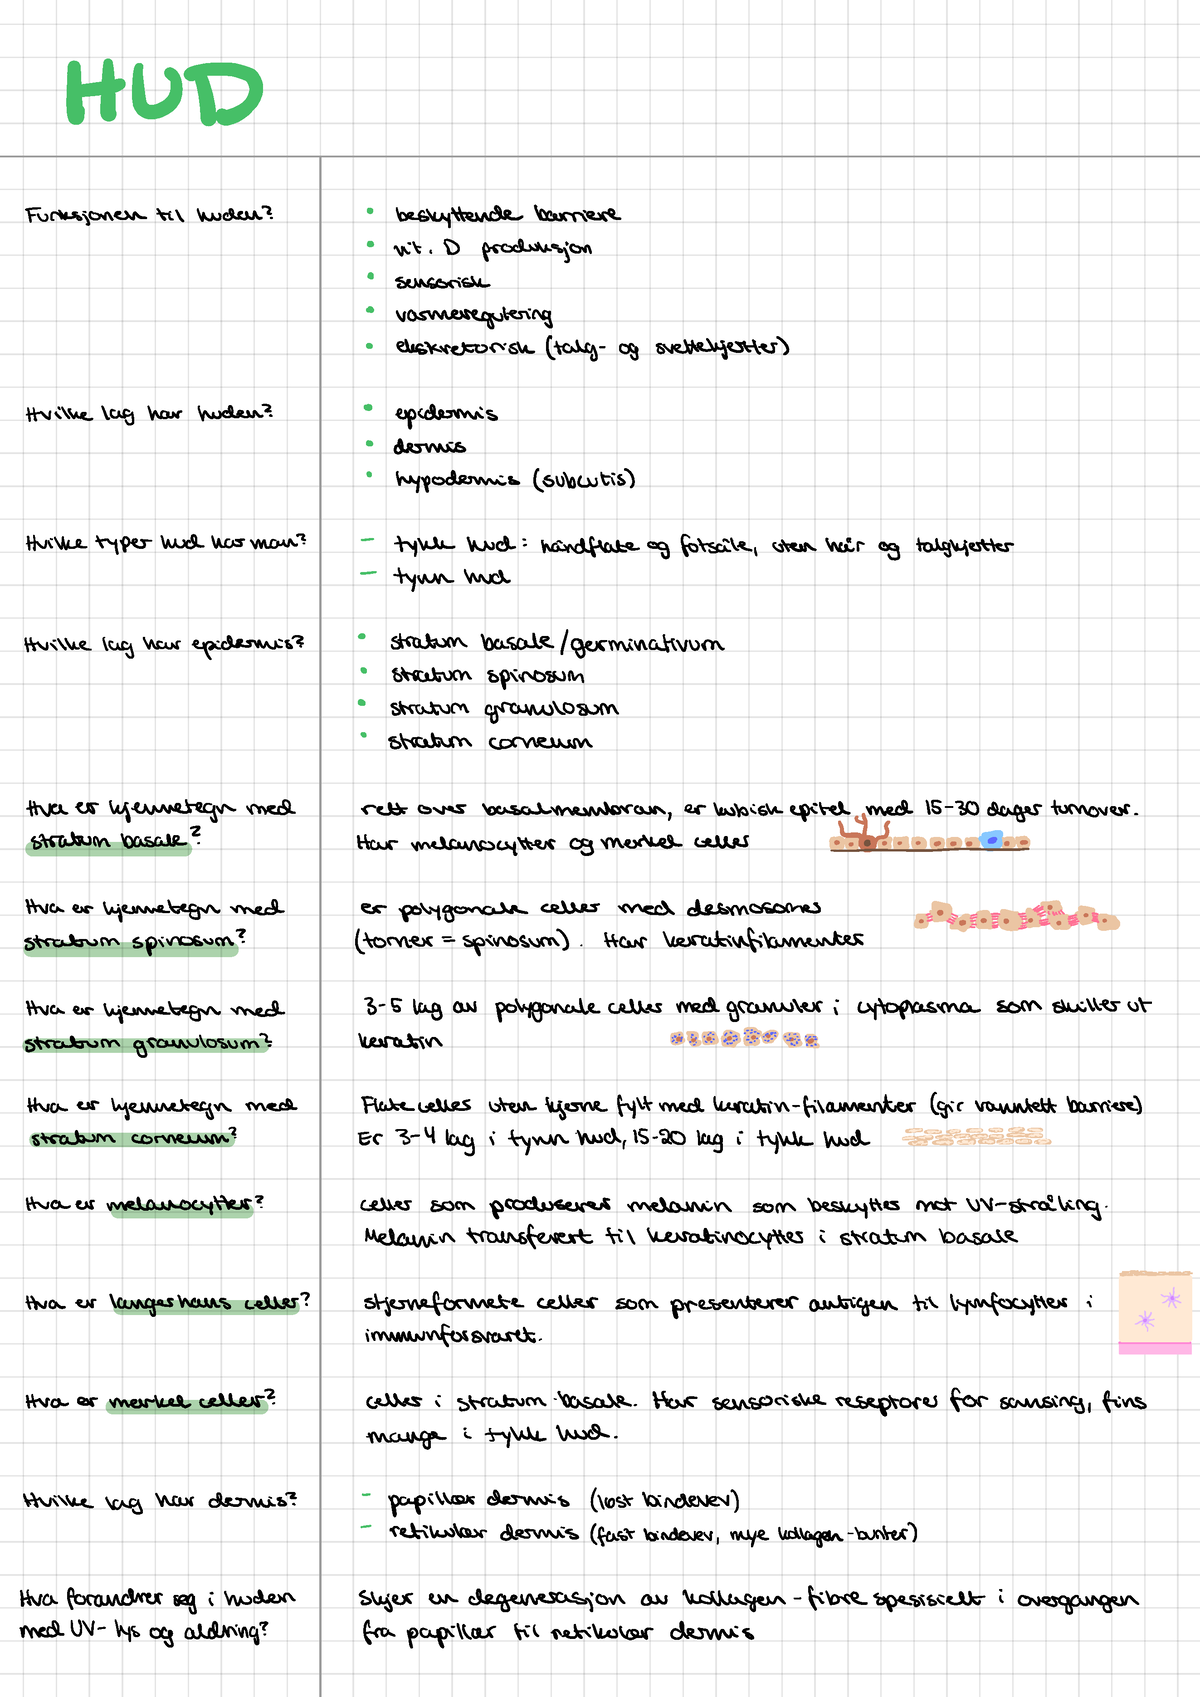 HUD
Funksjonen til huden?
• beskyttende barriere
• vit. D produksjon
• sensorisk
• varmeregulering
• ekskretorisk (talg- og svettekjertler)
Hvilke lag har huden?
• epidermis
• dermis
• hypodermis (subcutis)
Hvilke typer hud har man?
- tykk hud: håndflate og fotsåle, uten hår og talgkjertler
- tynn hud
Hvilke lag har epidermis?
• stratum basale/germinativum
• stratum spinosum
• stratum granulosum
• stratum corneum
Hva er kjennetegn med
stratum basale?
rett over basalmembran, er kubisk epitel med 15-30 dager turnover.
Har melanocytter og merkel celler
Hva er kjennetegn med
stratum spinosum?
er polygonale celler med desmosomer
(torner = spinosum). Har keratinfilamenter
Hva er kjennetegn med
stratum granulosum?
3-5 lag av polygonale celler med granuler i cytoplasma som skiller ut
keratin
Hva er kjennetegn med
stratum corneum?
Flate celler uten kjerne fylt med keratin-filamenter (gir vanntett barriere)
Er 3-4 lag i tynn hud, 15-20 lag i tykk hud
Hva er melanocytter?
celler som produserer melanin som beskytter mot UV-stråling.
Melanin transferert til keratinocytter i stratum basale
Hva er langerhans celler?
stjerneformete celler som presenterer antigen til lymfocytter i
immunforsvaret.
Hva er merkel celler?
celler i stratum basale. Har sensoriske reseptorer for sansing, fins
mange i tykk hud.
Hvilke lag har dermis?
- papillær dermis (løst bindevev)
- retikulær dermis (fast bindevev, mye kollagen-bunter)
Hva forandrer seg i huden
med UV-lys og aldring?
Skjer en degenerasjon av kollagen-fibre spesielt i overgangen
fra papillær til retikulær dermis